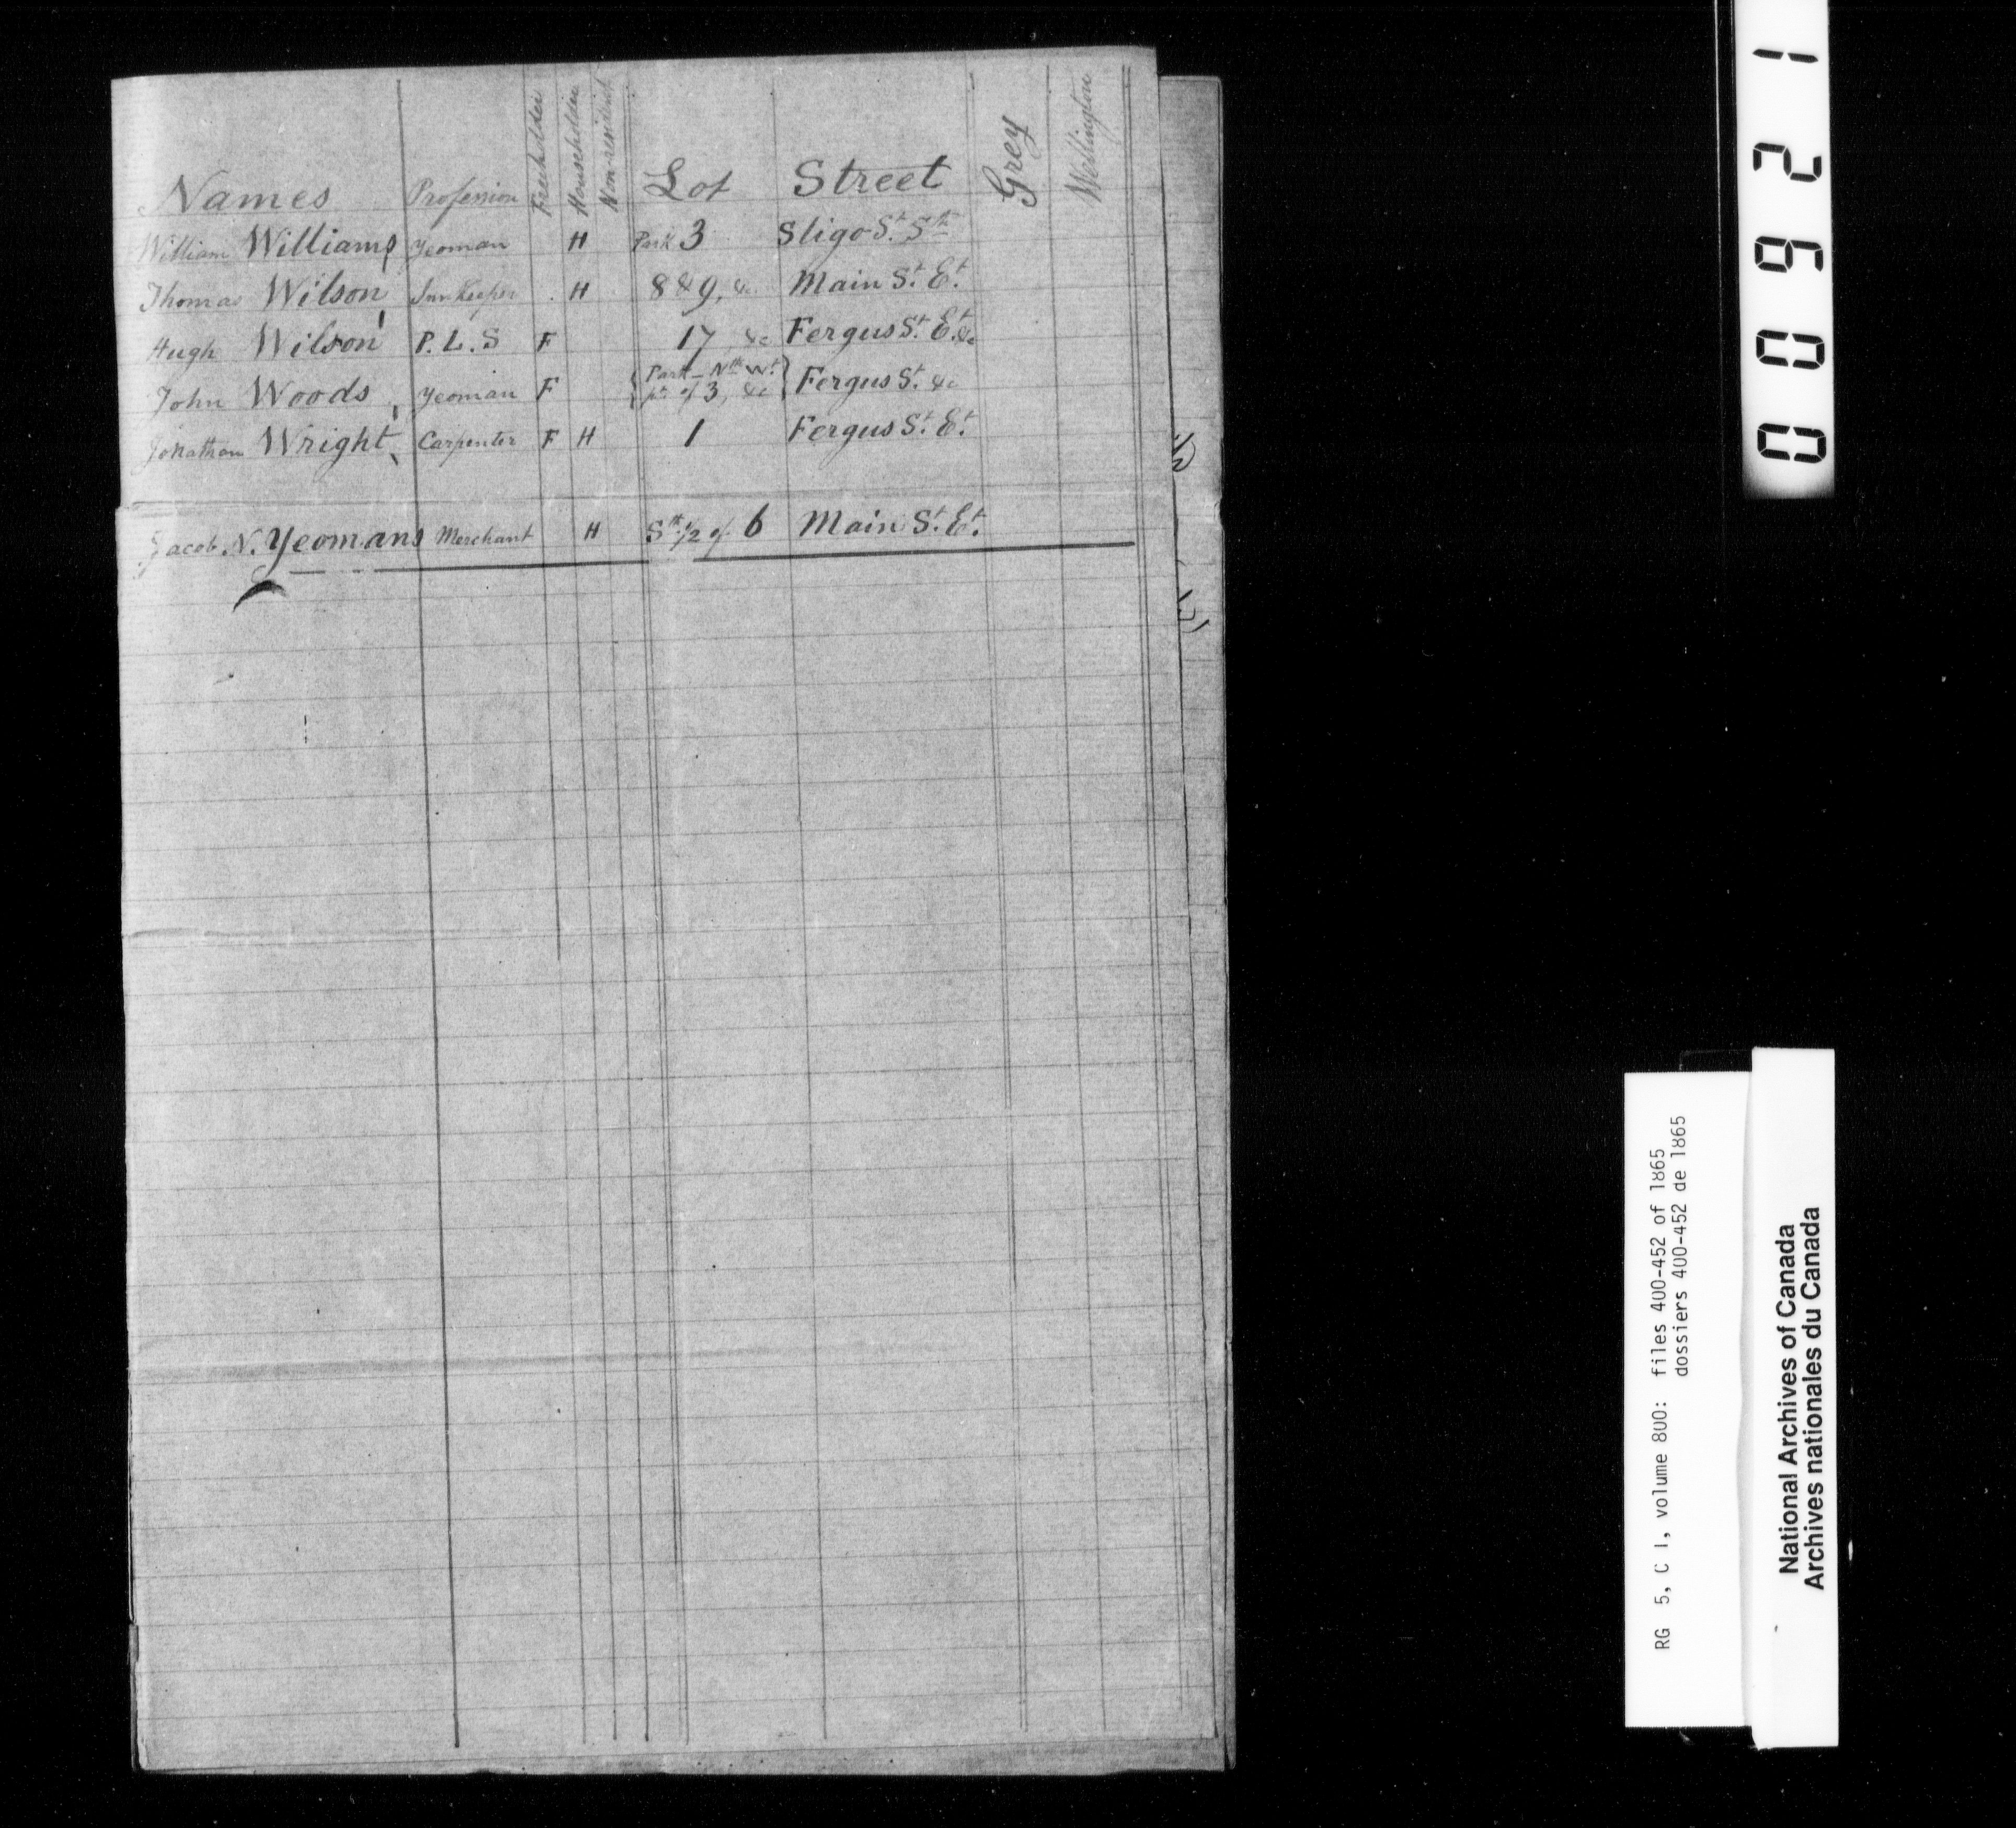 Names Profession Freeholder Householder Non-resident Lot Street Grey Wellington
William Williams Yeoman H Park 3 Sligo St. Sth
Thomas Wilson Innkeeper H 8 & 9, &c. Main St. Et.
Hugh Wilson P.L.S F 17, &c Fergus St. Et. &c
John Woods, Yeoman F { Park - Nth Wt. pt. of 3, &c } Fergus St. &c
Jonathan Wright, Carpenter F H 1 Fergus St. Et.
Jacob. N. Yeomans Merchant H Sth 1/2 of 6 Main St. Et.
00921
RG 5, C 1, volume 800: files 400-452 of 1865
dossiers 400-452 de 1865
National Archives of Canada
Archives nationales du Canada